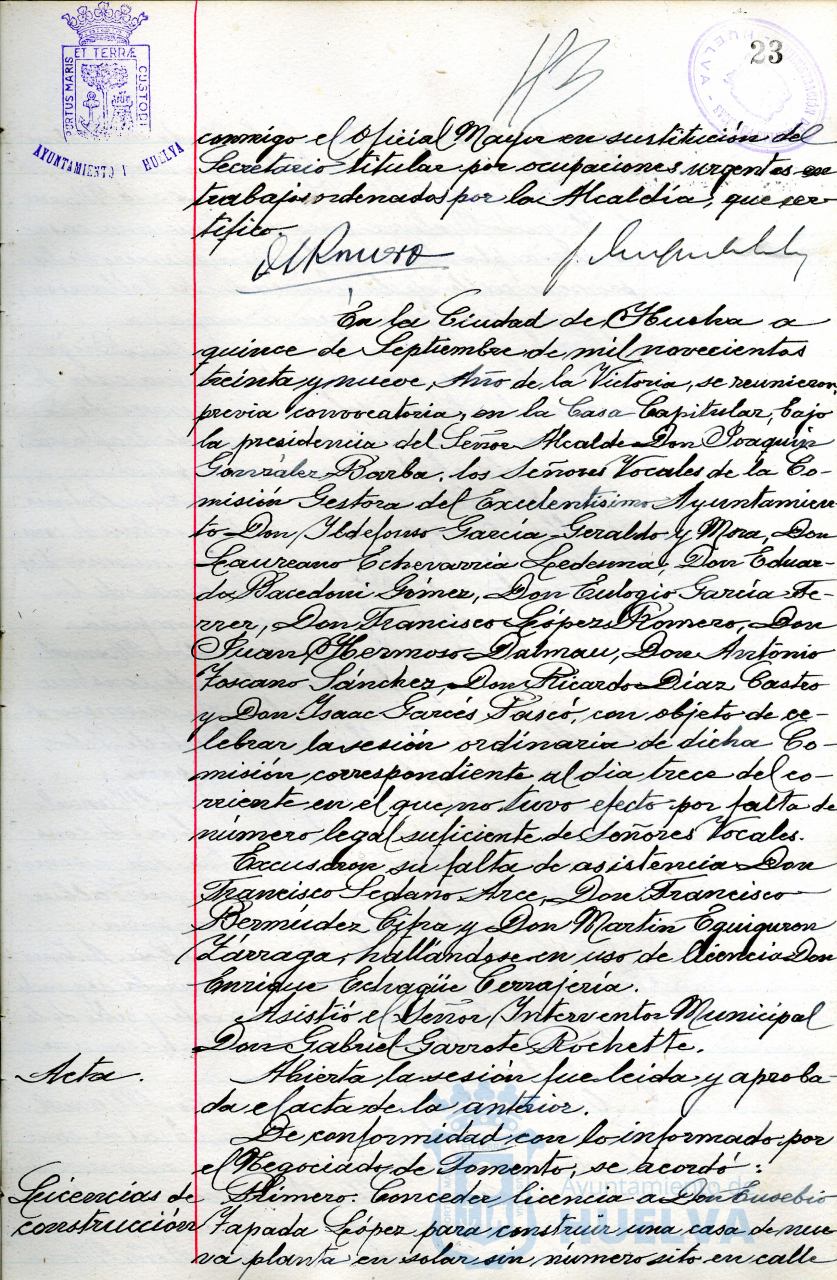 PORTUS MARIS ET TERRÆ CUSTODI
AYUNTAMIENTO HUELVA
HUELVA
23
113
conmigo el Oficial Mayor en sustitución del
Secretario titular por ocupaciones urgentes en
trabajos ordenados por la Alcaldía, que cer-
tifico.
En la Ciudad de Huelva a
quince de Septiembre de mil novecientos
treinta y nueve, Año de la Victoria, se reunieron,
previa convocatoria, en la Casa Capitular, bajo
la presidencia del Señor Alcalde Don Joaquin
González Barba, los Señores Vocales de la Co-
misión Gestora del Excelentísimo Ayuntamien-
to Don Ildefonso García Geraldo y Mora, Don
Laureano Echevarria Ledesma, Don Eduar-
do Bacedoni Gómez, Don Eulogio García Fe-
rrer, Don Francisco López Romero, Don
Juan Hermoso Dalmau, Don Antonio
Toscano Sánchez, Don Ricardo Díaz Castro
y Don Isaac Garcés Pascó, con objeto de ce-
lebrar la sesión ordinaria de dicha Co-
misión correspondiente al dia trece del co-
rriente en el que no tuvo efecto por falta de
número legal suficiente de Señores Vocales.
Excusaron su falta de asistencia Don
Francisco Sedano Arce, Don Francisco
Bermúdez Cifra y Don Martin Eguiguren
Zárraga, hallándose en uso de licencia Don
Enrique Echagüe Cerrajería.
Asistió el Señor Interventor Municipal
Don Gabriel Garrote Rochette.
Acta.
Abierta la sesión fue leida y aproba-
da el acta de la anterior.
De conformidad con lo informado por
el Negociado de Fomento, se acordó:
Licencias de
construcción
Primero: Conceder licencia a Don Eusebio
Zapada López para construir una casa de nue-
va planta en solar sin número sito en calle
Ayuntamiento de
HUELVA